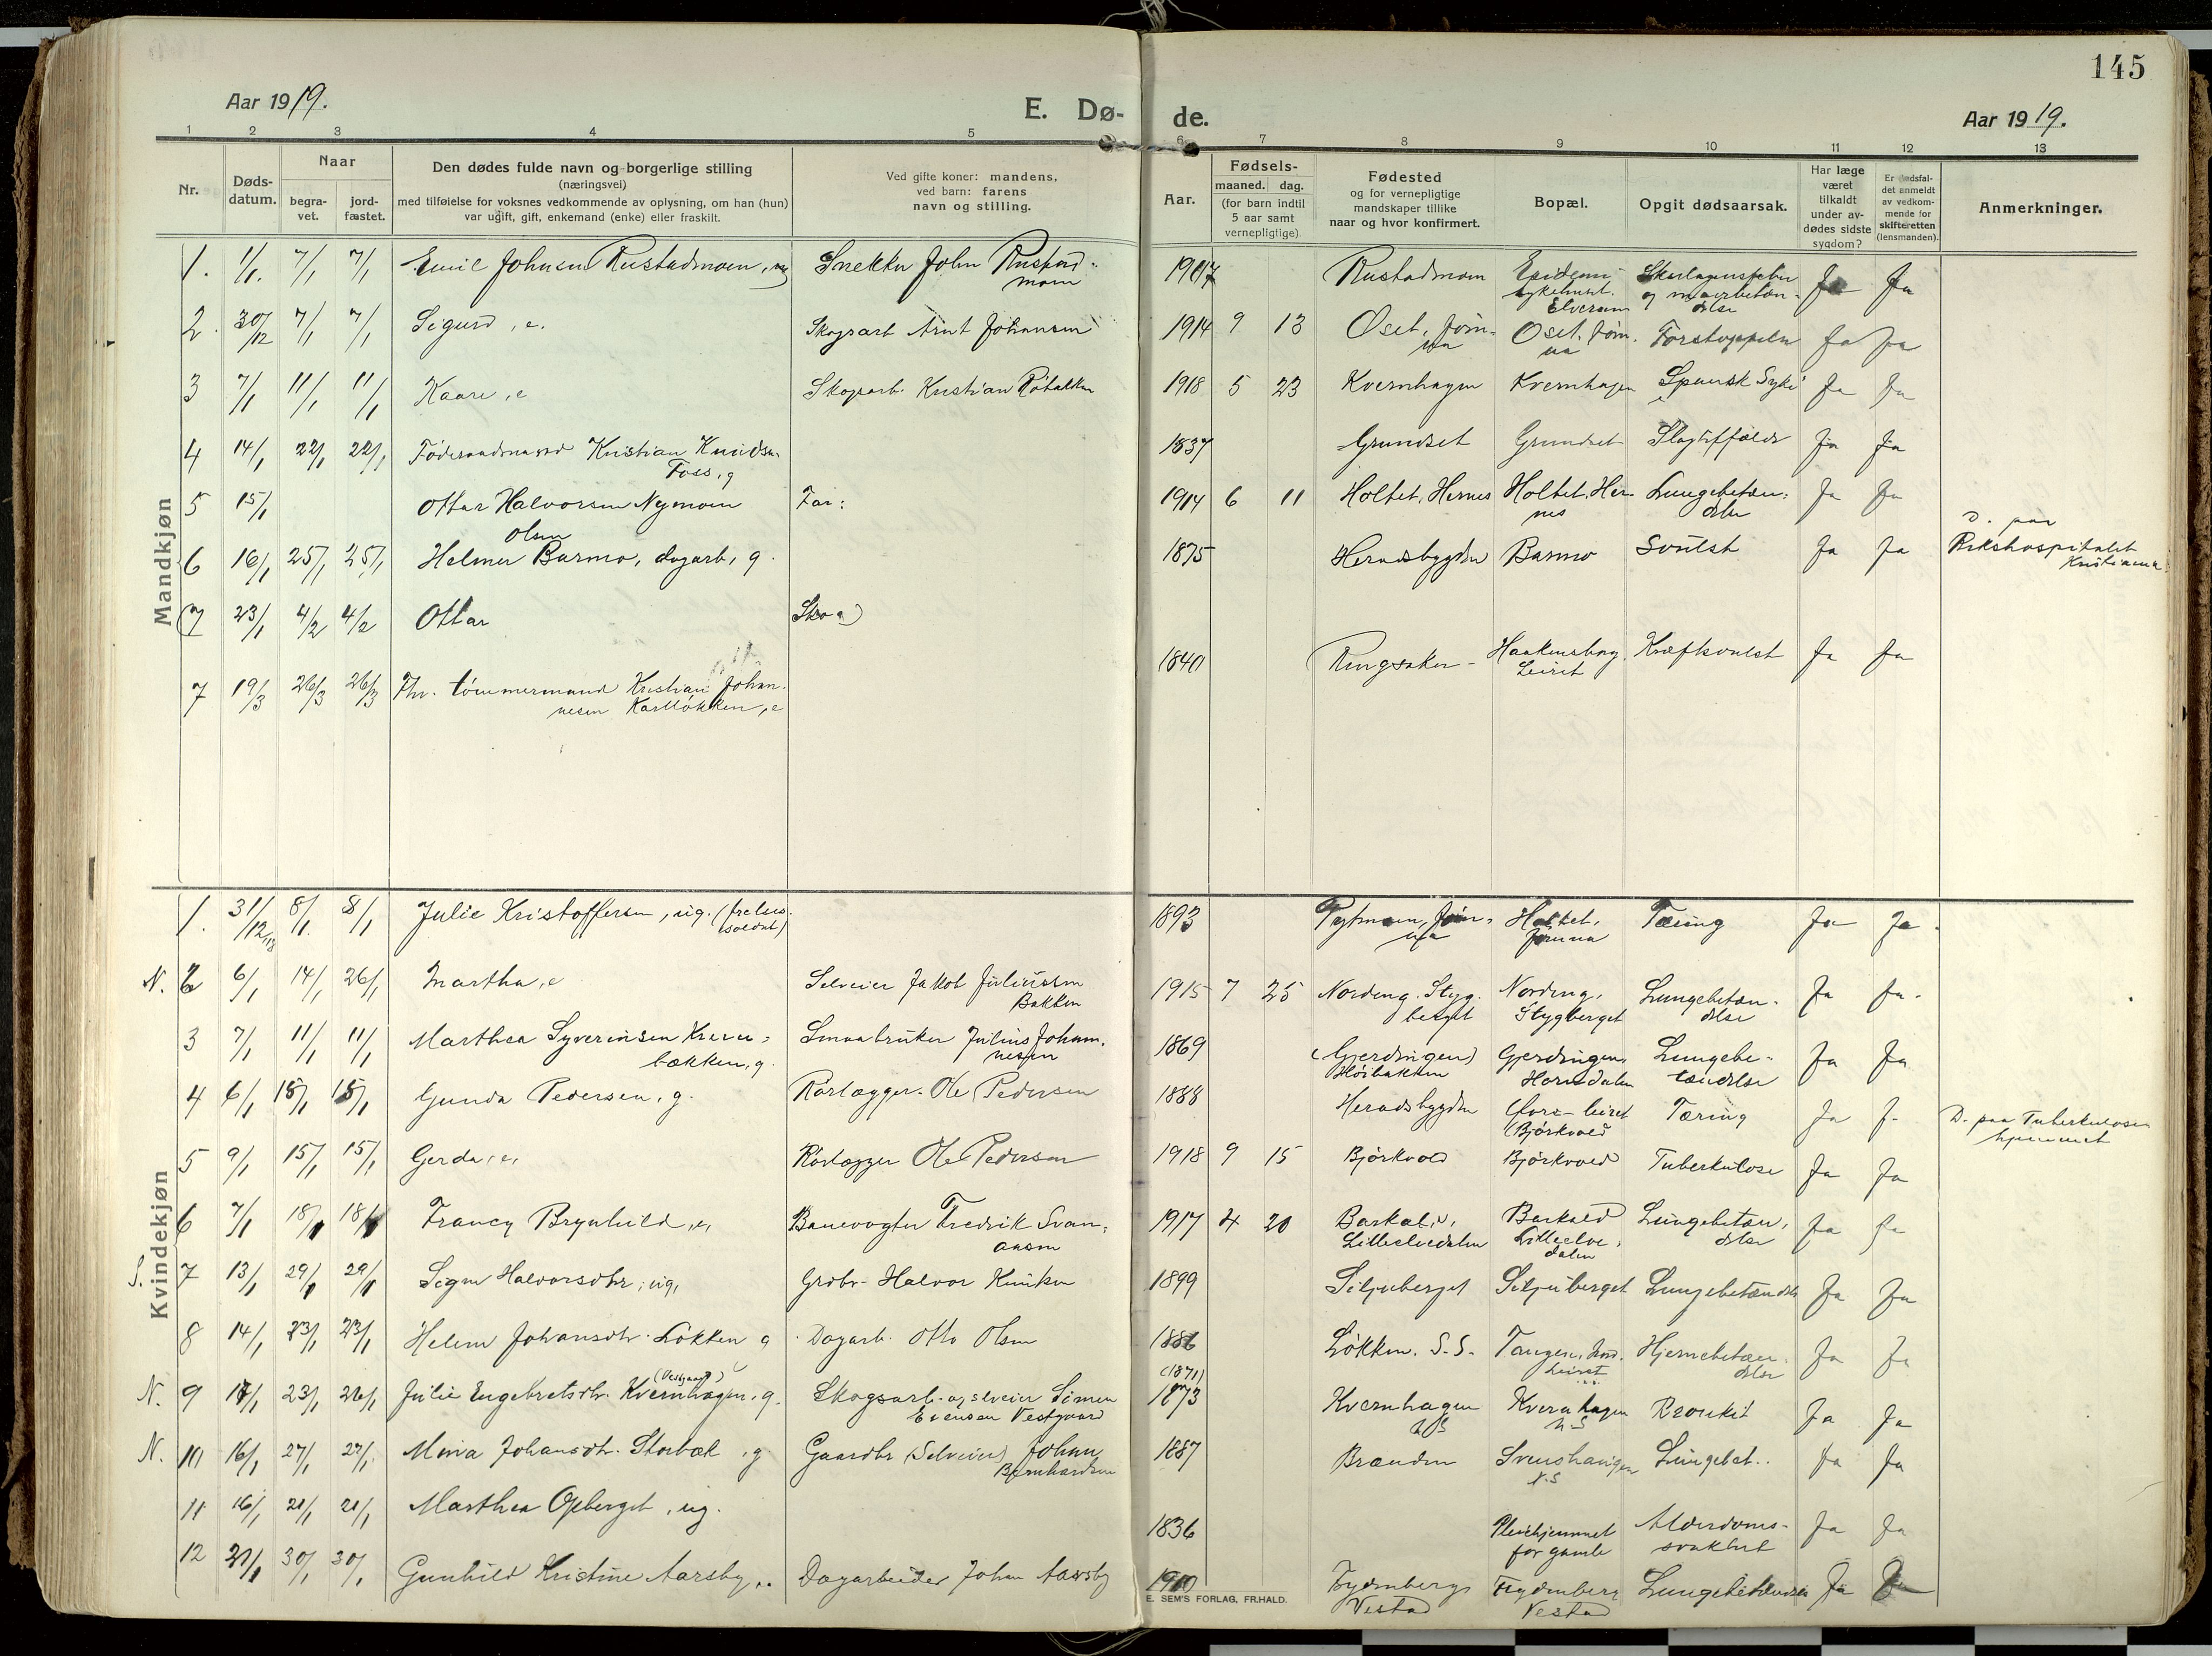 145
Aar 1919.
E. Dø-
de.
Aar 1919.
1 2 3 4 5 6 7 8 9 10 11 12 13
Nr.
Døds-
datum.
Naar
begra-
vet.
jord-
fæstet.
Den dødes fulde navn og borgerlige stilling
(næringsvei)
med tilføielse for voksnes vedkommende av oplysning, om han (hun)
var ugift, gift, enkemand (enke) eller fraskilt.
Ved gifte koner: mandens,
ved barn: farens
navn og stilling.
Aar.
Fødsels-
maaned. dag.
(for barn indtil
5 aar samt
vernepligtige)
Fødested
og for vernepligtige
mandskaper tillike
naar og hvor konfirmert.
Bopæl.
Opgit dødsaarsak.
Har læge
været
tilkaldt
under av-
dødes sidste
sygdom?
Er dødsfal-
det anmeldt
av vedkom-
mende for
skifteretten
(lensmanden).
Anmerkninger.
Mandkjøn
1. 1/1. 7/1 7/1 Emil Johnsen Rustadmoen, ug Snekker John Rustad-
moen
Rustadmoen Epidemi-
sykehuset.
Elverum
Skarlagensfeber
Ja Ja
2. 30/12 7/1 7/1 Sigurd, e. Skogsarb Arnt Johansen 1914 9 13 Oset, Jøm-
na
Oset, Jøm-
na
Forstoppelse Ja Ja
3 7/1 11/1 11/1 Kaare, e Skogsarb. Kristian 1918 5 23 Kvernhagen Kvernhagen Spansk Syke Ja Ja
4 14/1 22/1 22/1 Føderaadsmand Kristian Knudsen
Foss, g
1837 Grundset Grundset Slagtilfælde Ja Ja
5 15/1 Ottar Halvorsen Nymoen Far: 1914 6 11 Holtet, Hernes Holtet, Her-
nes
Lungebetæn-
delse
Ja Ja
6 16/1 25/1 25/1 Helmer Olsen Barmo, dagarb, g. 1875 Heradsbygden Barmo Svulst Ja Ja D. paa
Rikshospitalet
Kristiania
(7 23/1 4/2 4/2 Ottar Skog)
7 19/3 26/3 26/3 Fhv. tømmermand Kristian Johan-
nesen Karlløkken, e
1840 Ringsaker Haakensborg
Leiret
Kræftsvulst Ja Ja
Kvindekjøn
1. 31/12 18 8/1. 8/1 Julie Kristoffersen, ug. (frelses-
soldat)
1893 Jøm-
na
Holtet,
Jømna
Tæring Ja Ja.
N. 2 6/1 14/1 26/1 Martha, e Selveier Jakob Juliussen
Bakken
1915 7 25 Nordeng, Styg-
berget
Nordeng,
Stygberget
Lungebetæn-
delse
Ja Ja.
3 7/1 11/1 11/1 Marthea Syverinsen Kvern-
bækken, g.
Smaabruker Julius Johan-
nesen
1869 (Gjerdingen)
Høibakken
Gjerdingen,
Horndalen
Lungebe-
tændelse
Ja Ja
4 6/1 15/1 15/1 Gunda Pedersen, g. Rørlægger Ole Pedersen 1888 Heradsbygden
(Bjørkvold
Tæring Ja J. D. paa Tuberkulose-
hjemmet
5 9/1 15/1 15/1 Gerda, e, Rørlægger Ole Pedersen 1918 9 15 Bjørkvold Bjørkvold Tuberkulose Ja Ja
6 7/1 18/1 18/1 Francy Brynhild, e, Banevogter Fredrik Svan-
aasen
1917 4 20 Barkald,
Lilleelvedalen
Barkald
Lilleelve-
dalen
Lungebetæn-
delse
Ja Ja
S. 7 13/1 29/1 29/1 Signe Halvorsdtr, ug, Grdbr. Halvor Kiniken 1899 Siljuberget Siljuberget Lungebetændelse Ja Ja
8 14/1 23/1 23/1 Helene Johansdtr. Løkken g Dagarb. Otto Olsen 1886 Løkken. S.S. Tangen, 
Leiret
Hjernebetæn-
delse
Ja Ja
N. 9 17/1 23/1 26/1 Julie Engebretsdtr. Kvernhagen, g.
(Vestgaard)
Skogsarb. og selveier Simen
Evensen Vestgaard
(1871)
1873 Kvernhagen
N S
Kvernhagen
N S
Bronkit Ja Ja
N. 10 16/1 27/1 27/1 Mina Johansdtr. Storbæk, g Gaardbr (Selveier) Johan
Bernhardsen
1887 Brænden Svenshaugen
N.S
Lungebet.. Ja Ja
11 16/1 21/1 21/1 Marthea Opberget, ug. 1836 Pleiehjemmet
for gamle
Alderdoms-
svakhet
Ja Ja
12 21/1 30/1 30/1 Gunhild Kristine Aarsby, Dagarbeider Johan Aarsby 1910 Frydenberg
Vestad
Frydenberg
Vestad
Lungebetændelse Ja
E. SEM'S FORLAG, FR.HALD.